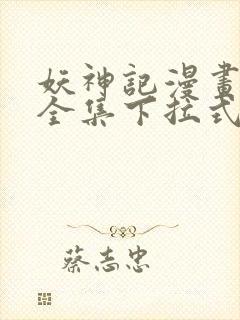 妖神記漫畫
全集下拉式
蔡志忠